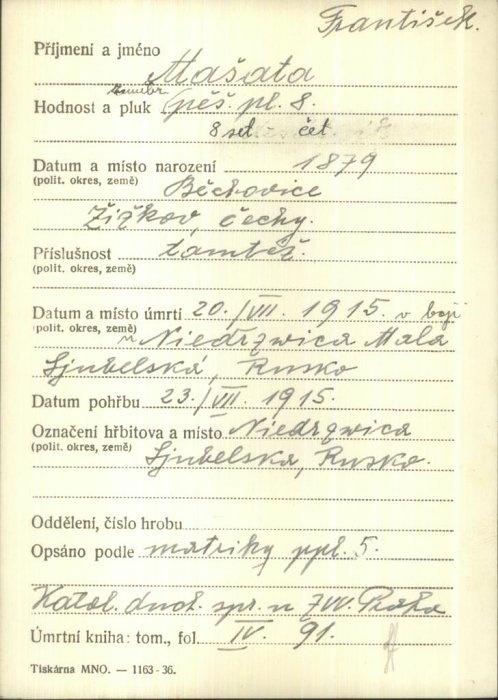 František.
Příjmení a jméno
Mašata
Hodnost a pluk pěš. pl. 8.
8 set. čet.
Datum a místo narození 1879
(polit. okres, země) Běchovice
Žižkov, čechy.
Příslušnost tamtéž.
(polit. okres, země)
Datum a místo úmrtí 20./VII. 1915. v boji
(polit. okres, země) u Niedrzwica Mala
Ljubelská, Rusko
Datum pohřbu 23./VII. 1915.
Označení hřbitova a místo Niedrzwica
(polit. okres, země) Ljubelska, Rusko.
Oddělení, číslo hrobu
Opsáno podle matriky ppl. 5.
Katol. duch. spr. u ZVV. Praha
Úmrtní kniha: tom., fol. IV. 91.
Tiskárna MNO. — 1163-36.